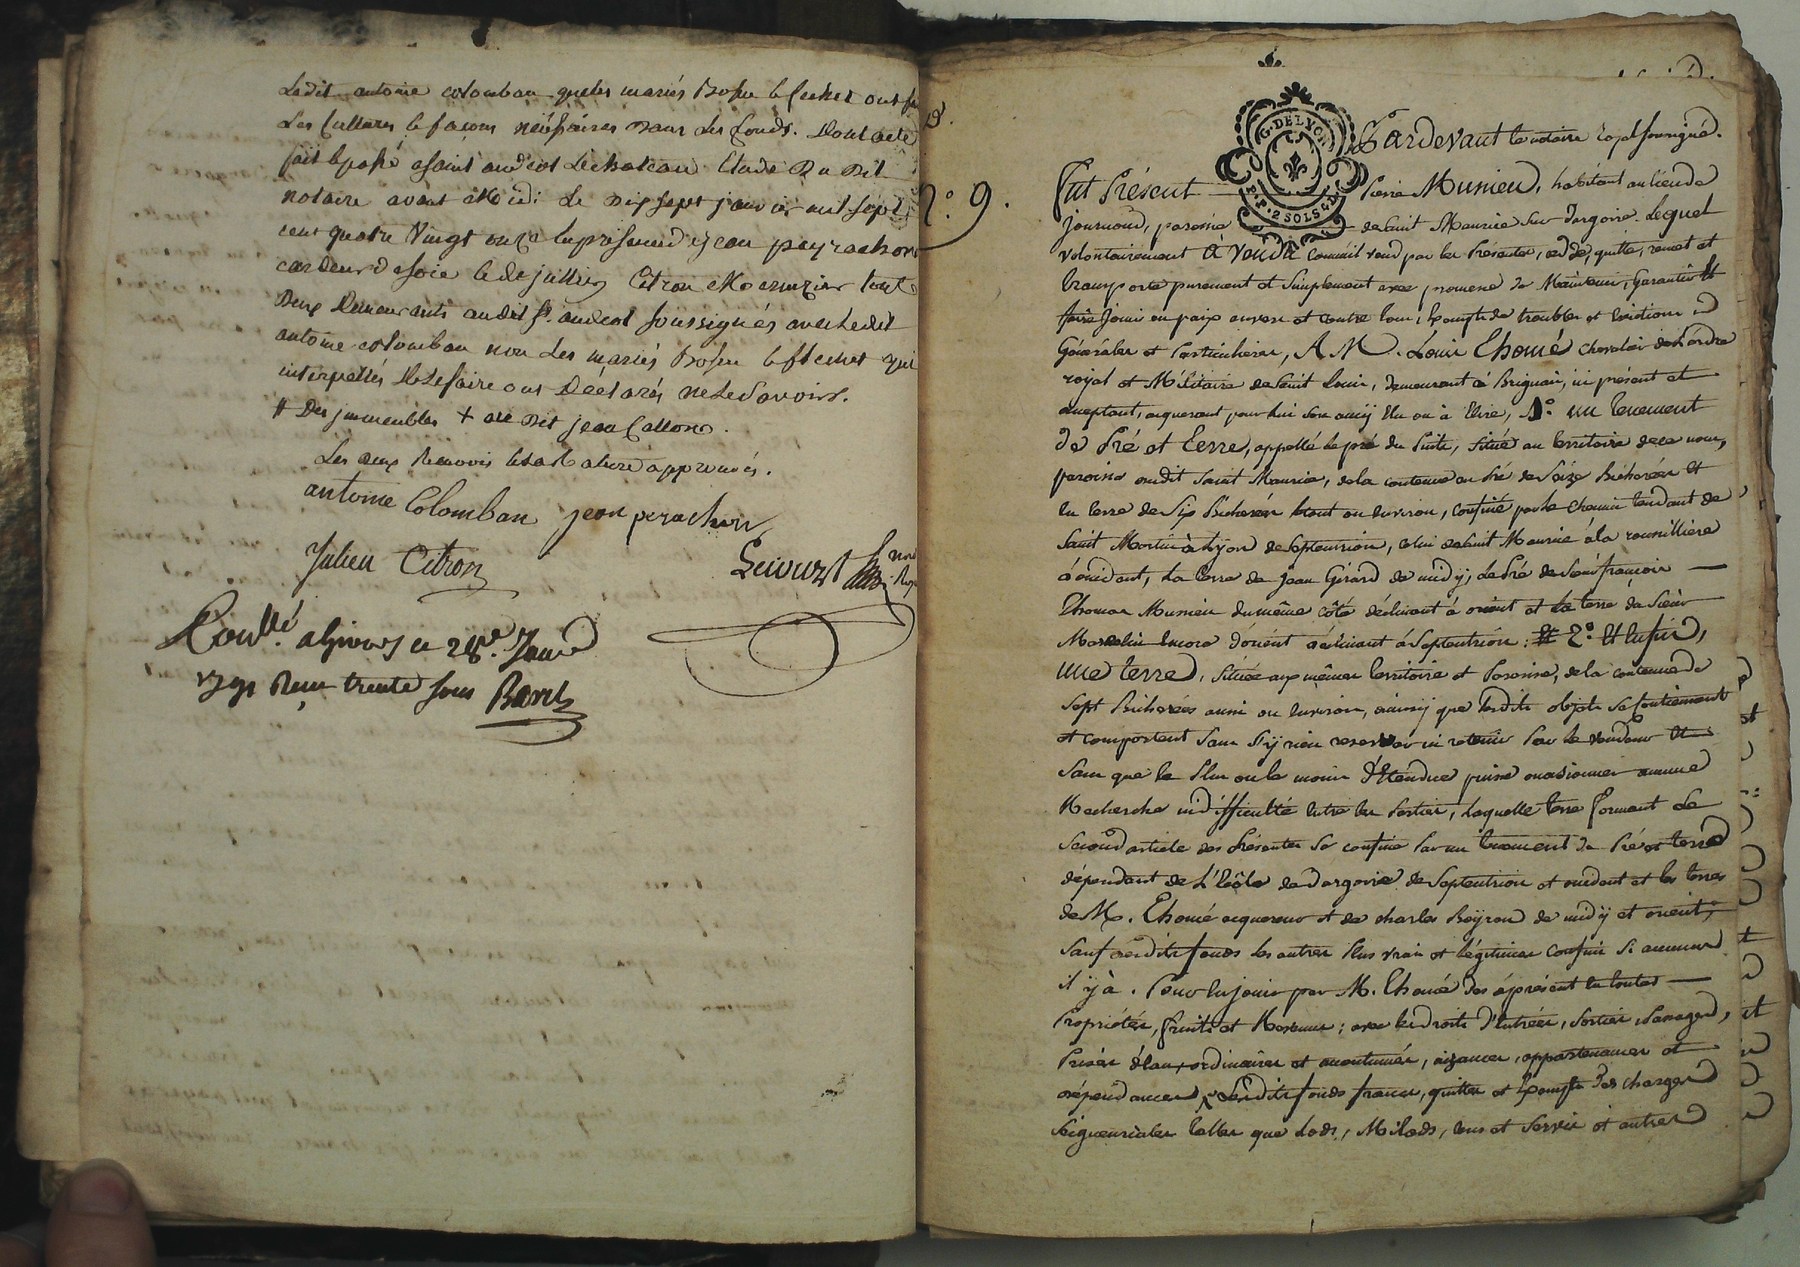 Ledit antoine colomban queles mariés Bosfu & fechet ont fa
Les Cultures & facons néséssaires dans les fonds. Dont acte
fait & passé a saint andéol Lechateau Etude Du Dit
notaire avant Midi: Le Dix sept janvier mil sept
cent quatre Vingt onze en présence de jean peyrachon
cardeur de soie & de jullien Citron tout
Deux Demeurants audit St. andeol soussignés avec Ledit
antoine colomban non Les mariés Bosfu & fechet qui
interpellés De Le faire ont Déclarés ne Le Savoir.
# Des immeubles + au dit jean
Les deux Renvois & la Rature approuvés.
antoine Colomban jean perachon
Julien Citron
Conllé a Givors ce 28e. Janv
1791 Reçu trente sous
n.° 9.
G. DE LYON
P.P. 2 SOLS 4 D.
Pardevant le notaire royal soussigné.
Fut Présent Pierre Musieu, habitant au lieu de
Journoud, paroisse de Saint Maurice sur Dargoire. Lequel
volontairement A Vendu comme il vend par les Présentes, cede, quitte, remet et
transporte purement et simplement avec promesse de Maintenir, Garantir et
faire jouir en paix envers et contre tous, Exempt de troubles et évictions
Générales et Particulieres, A M. Louis Thomé chevalier de L'ordre
royal et Militaire de Saint Louis, demeurant à Brignais, ici présent et
acceptant, acquerant pour lui son amy élu ou à Elire, 1.° un tenement
de Pré et Terre, appellé le pré du Puits, situé au territoire de ce nom,
paroisse audit Saint Maurice, de la contenue en Pré de Seize Bicherées et
en terre de Six Bicherées le tout ou environ, confiné par le Chemin tendant de
Saint Martin à Lyon de Septentrion, celui de Saint Maurice à la roussilliere
d'occident, La terre de Jean Girard de midy, Le Pré de Sieur françois
Thomas Musieu du même côté déclinant à orient et La terre du Sieur
encore d'orient déclinant à Septentrion: 2.° Et Enfin,
une terre, située aux mêmes territoire et Paroisse, de la contenue de
Sept Bicherées aussi ou environ, ainsy que lesdits objets Se Contiennent
et comportent sans s'y rien reserver ni retenir Par le vendeur Et
sans que le Plus ou le moins d'Etendue puisse occasionner aucune
Recherche ni difficulté Entre les Parties, Laquelle terre formant Le
Second article des Présentes Se confine Par un tenement de Pré et terre
dépendant de L'Ecole de Dargoire de Septentrion et occident et les terres
de M. Thomé acquereur et de charles Beyron de midy et orient,
Sauf desdits fonds les autres Plus vrais et légitimes Confins Si aucuns
il y à. Pour En jouir par M. Thomé dès àprésent En toutes
Propriétés, fruits et Revenus; avec les droits d'Entrées, Sorties, Passages,
Prises d'Eau, ordinaires et accoutumés, aizances, appartenances et
dépendances, Lesdits fonds francs, quittes et Exempts des charges
Seigneuriales telles que Lods, Milods, cens et Servis et autres